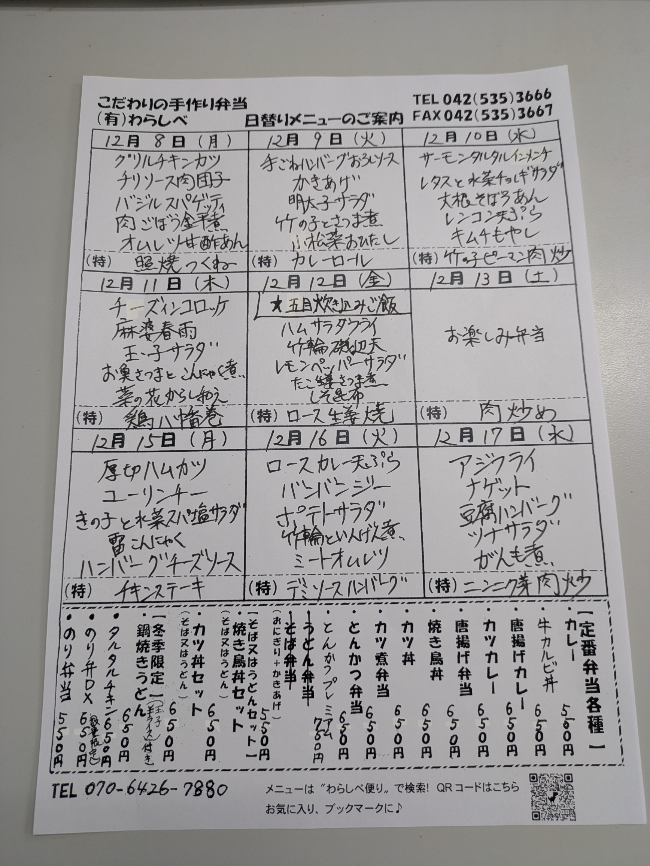 こだわりの手作り弁当
(有)わらしべ 日替りメニューのご案内
TEL 042(535)3666
FAX 042(535)3667
12月 8日(月)
グリルチキンカツ
チリソース肉団子
バジルスパゲッティ
肉ごぼう金平煮
オムレツ甘酢あん
(特) 照焼つくね
12月 9日(火)
手ごねハンバーグおろしソース
かきあげ
明太子サラダ
竹の子とさつま煮
小松菜おひたし
(特) カレーロール
12月 10日(水)
サーモンタルタルインメンチ
レタスと水菜チョレギサラダ
大根そぼろあん
レンコン天ぷら
キムチもやし
(特) 竹の子ピーマン肉炒
12月 11日(木)
チーズインコロッケ
麻婆春雨
玉子サラダ
お奥さつまとこんにゃく煮
菜の花からし和え
(特) 鶏八幡巻
12月 12日(金)
★五目炊き込みご飯
ハムサラダフライ
竹輪磯辺天
レモンペッパーサラダ
たこ さつま煮
しそ昆布
(特) ロース生姜焼
12月 13日(土)
お楽しみ弁当
(特) 肉炒め
12月 15日(月)
厚切ハムカツ
ユーリンチー
きの子と水菜スパ塩サラダ
雷こんにゃく
ハンバーグチーズソース
(特) チキンステーキ
12月 16日(火)
ロースカレー天ぷら
バンバンジー
ポテトサラダ
竹輪といんげん煮
ミートオムレツ
(特) デミソースハンバーグ
12月 17日(水)
アジフライ
ナゲット
豆腐ハンバーグ
ツナサラダ
がんも煮
(特) ニンニク芽肉炒
【定番弁当各種】
・カレー 560円
・牛カルビ丼 650円
・唐揚げカレー 650円
・カツカレー 650円
・唐揚げ弁当 650円
・焼き鳥丼 650円
・カツ丼 650円
・カツ煮弁当 650円
・とんかつ弁当 650円
・とんかつプレミアム 760円
・うどん弁当
・そば弁当
(おにぎり+かきあげ) 550円
【そば又はうどんセット】
・焼き鳥丼セット 650円
(そば又はうどん)
・カツ丼セット 650円
(そば又はうどん)
【冬季限定】
・鍋焼きうどん 650円
(玉子 付き)
・タルタルチキン 650円
・のり弁DX 650円
・のり弁当 550円
TEL 070-6426-7880
メニューは "わらしべ便り" で検索! QRコードはこちら
お気に入り、ブックマークに♪